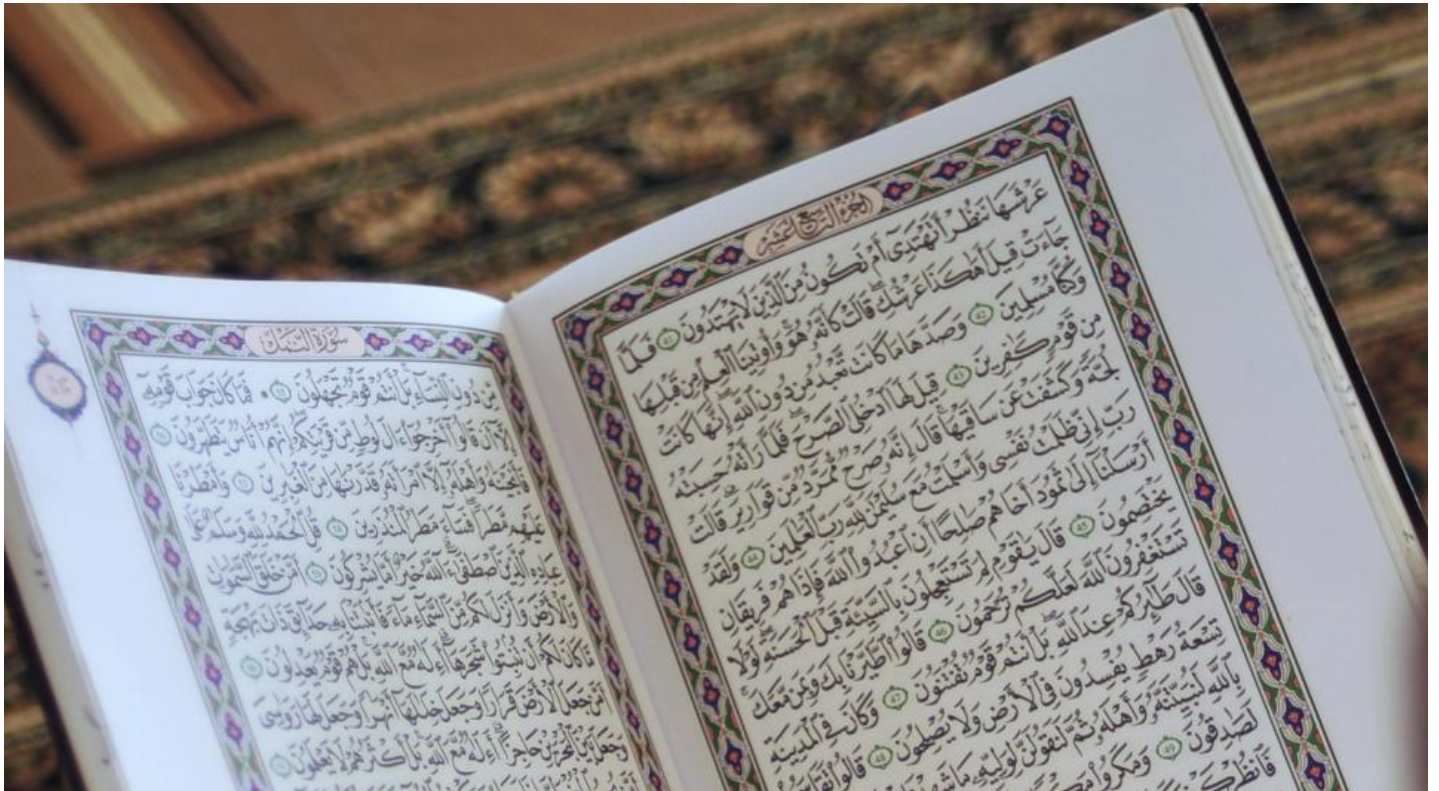 الجزء التاسع عشر
عَرْشَهَا نَنظُرْ أَتَهْتَدِىٓ أَمْ تَكُونُ مِنَ ٱلَّذِينَ لَا يَهْتَدُونَ ٤١ فَلَمَّا
جَآءَتْ قِيلَ أَهَٰكَذَا عَرْشُكِ قَالَتْ كَأَنَّهُۥ هُوَ وَأُوتِينَا ٱلْعِلْمَ مِن قَبْلِهَا
وَكُنَّا مُسْلِمِينَ ٤٢ وَصَدَّهَا مَا كَانَت تَّعْبُدُ مِن دُونِ ٱللَّهِ إِنَّهَا كَانَتْ
مِن قَوْمٍ كَٰفِرِينَ ٤٣ قِيلَ لَهَا ٱدْخُلِى ٱلصَّرْحَ فَلَمَّا رَأَتْهُ حَسِبَتْهُ
لُجَّةً وَكَشَفَتْ عَن سَاقَيْهَا قَالَ إِنَّهُۥ صَرْحٌ مُّمَرَّدٌ مِّن قَوَارِيرَ قَالَتْ
رَبِّ إِنِّى ظَلَمْتُ نَفْسِى وَأَسْلَمْتُ مَعَ سُلَيْمَٰنَ لِلَّهِ رَبِّ ٱلْعَٰلَمِينَ ٤٤ وَلَقَدْ
أَرْسَلْنَآ إِلَىٰ ثَمُودَ أَخَاهُمْ صَٰلِحًا أَنِ ٱعْبُدُوا۟ ٱللَّهَ فَإِذَا هُمْ فَرِيقَانِ
يَخْتَصِمُونَ ٤٥ قَالَ يَٰقَوْمِ لِمَ تَسْتَعْجِلُونَ بِٱلسَّيِّئَةِ قَبْلَ ٱلْحَسَنَةِ لَوْلَا
تَسْتَغْفِرُونَ ٱللَّهَ لَعَلَّكُمْ تُرْحَمُونَ ٤٦ قَالُوا۟ ٱطَّيَّرْنَا بِكَ وَبِمَن مَّعَكَ
قَالَ طَٰٓئِرُكُمْ عِندَ ٱللَّهِ بَلْ أَنتُمْ قَوْمٌ تُفْتَنُونَ ٤٧ وَكَانَ فِى ٱلْمَدِينَةِ
تِسْعَةُ رَهْطٍ يُفْسِدُونَ فِى ٱلْأَرْضِ وَلَا يُصْلِحُونَ ٤٨ قَالُوا۟ تَقَاسَمُوا۟
بِٱللَّهِ لَنُبَيِّتَنَّهُۥ وَأَهْلَهُۥ ثُمَّ لَنَقُولَنَّ لِوَلِيِّهِۦ مَا شَهِدْنَا
لَصَٰدِقُونَ ٤٩ وَمَكَرُوا۟
فَٱنظُرْ كَيْفَ
سورة النمل
مِّن دُونِ ٱلنِّسَآءِ بَلْ أَنتُمْ قَوْمٌ تَجْهَلُونَ ٥٥ فَمَا كَانَ جَوَابَ قَوْمِهِۦٓ
إِلَّآ أَن قَالُوٓا۟ أَخْرِجُوٓا۟ ءَالَ لُوطٍ مِّن قَرْيَتِكُمْ إِنَّهُمْ أُنَاسٌ يَتَطَهَّرُونَ ٥٦
فَأَنجَيْنَٰهُ وَأَهْلَهُۥٓ إِلَّا ٱمْرَأَتَهُۥ قَدَّرْنَٰهَا مِنَ ٱلْغَٰبِرِينَ ٥٧ وَأَمْطَرْنَا
عَلَيْهِم مَّطَرًا فَسَآءَ مَطَرُ ٱلْمُنذَرِينَ ٥٨ قُلِ ٱلْحَمْدُ لِلَّهِ وَسَلَٰمٌ عَلَىٰ
عِبَادِهِ ٱلَّذِينَ ٱصْطَفَىٰٓ ءَآللَّهُ خَيْرٌ أَمَّا يُشْرِكُونَ ٥٩ أَمَّنْ خَلَقَ ٱلسَّمَٰوَٰتِ
وَٱلْأَرْضَ وَأَنزَلَ لَكُم مِّنَ ٱلسَّمَآءِ مَآءً فَأَنۢبَتْنَا بِهِۦ حَدَآئِقَ ذَاتَ بَهْجَةٍ
مَّا كَانَ لَكُمْ أَن تُنۢبِتُوا۟ شَجَرَهَآ أَءِلَٰهٌ مَّعَ ٱللَّهِ بَلْ هُمْ قَوْمٌ يَعْدِلُونَ ٦٠
أَمَّن جَعَلَ ٱلْأَرْضَ قَرَارًا وَجَعَلَ خِلَٰلَهَآ أَنْهَٰرًا وَجَعَلَ لَهَا رَوَٰسِىَ
وَجَعَلَ بَيْنَ ٱلْبَحْرَيْنِ حَاجِزًا أَءِلَٰهٌ مَّعَ ٱللَّهِ بَلْ أَكْثَرُهُمْ لَا يَعْلَمُونَ ٦١